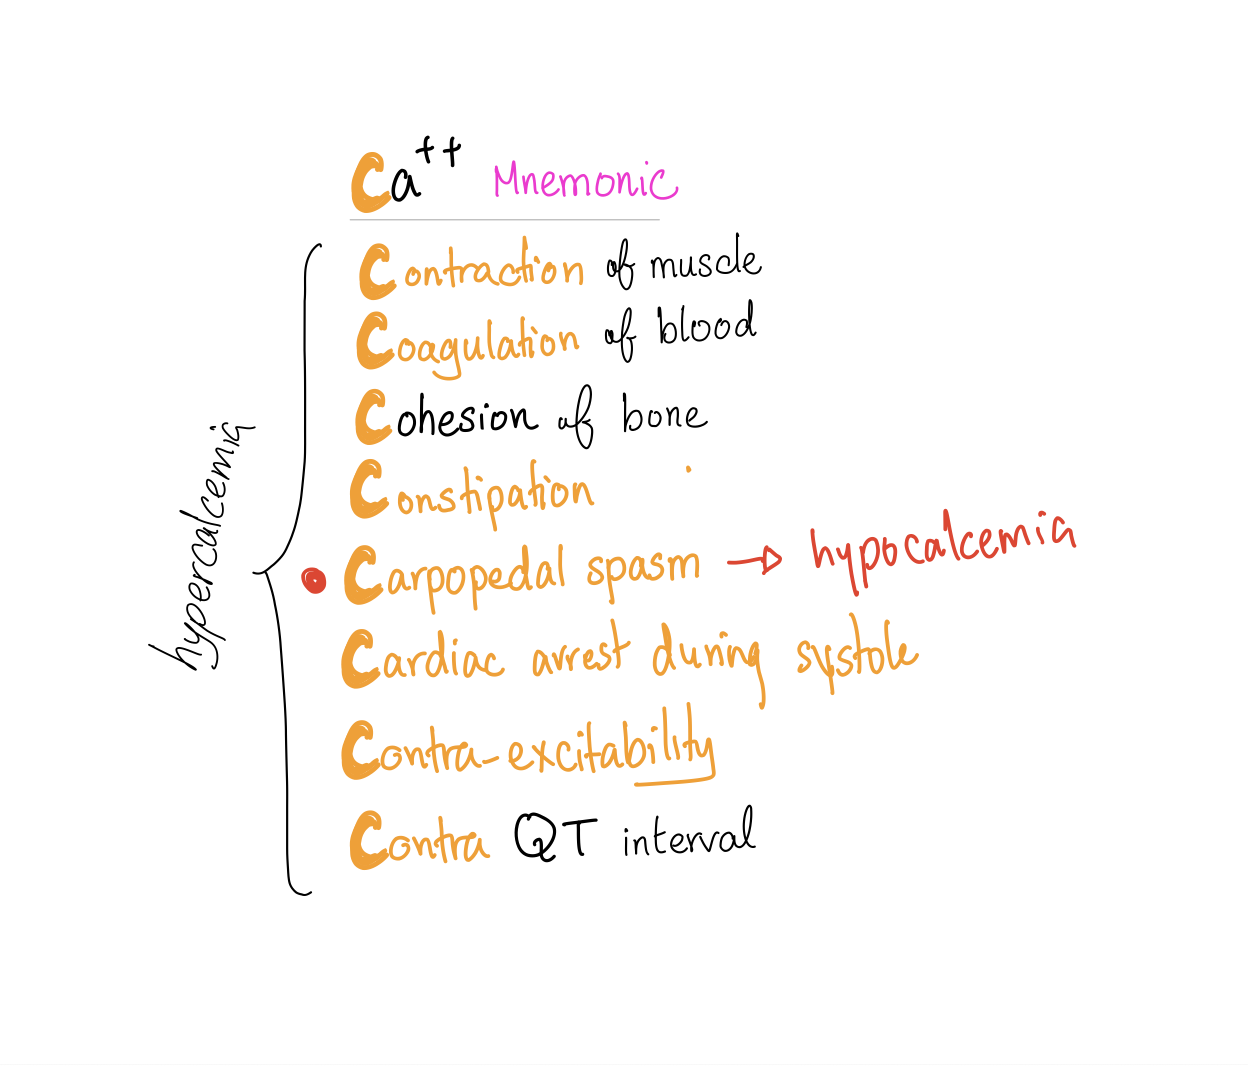 Ca++ Mnemonic
Contraction of muscle
Coagulation of blood
Cohesion of bone
Constipation
Carpopedal spasm → hypocalcemia
Cardiac arrest during systole
Contra-excitability
Contra QT interval
hypercalcemia